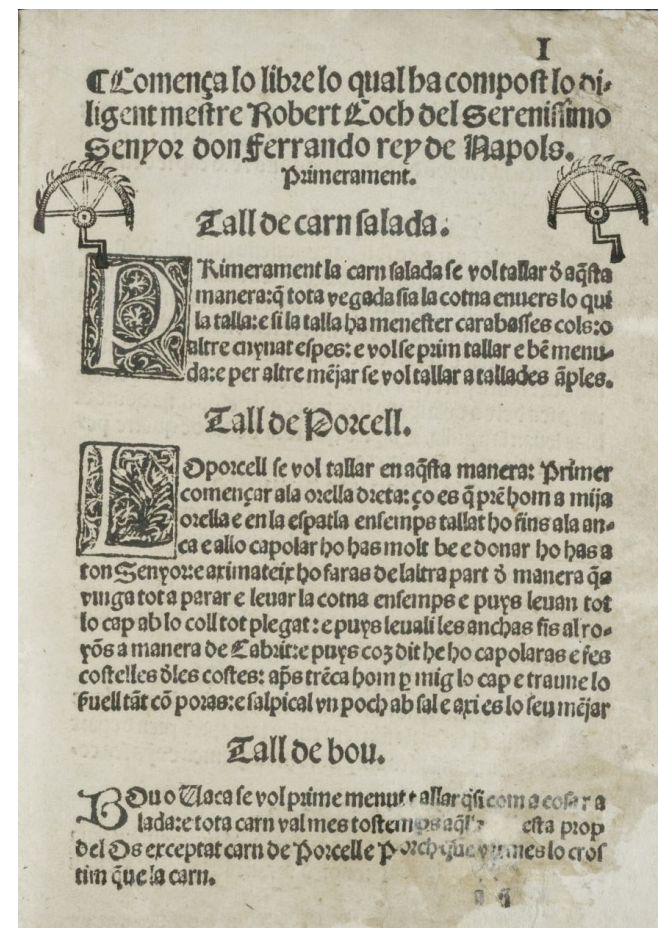 I
¶ Comença lo libre lo qual ha compost lo di-
ligent mestre Robert Coch del Serenissimo
Senyor don Ferrando rey de Napols.
Primerament.
Tall de carn salada.
PRimerament la carn salada se vol tallar đ aq̃sta
manera: q̃ tota vegada sia la cotna envers lo qui
la talla: e si la talla ha menester carabasses cols: o
altre cuynat espes: e vol se prim tallar e bẽ menu-
da: e per altre mẽjar se vol tallar a tallades ãples.
Tall de Porcell.
LO porcell se vol tallar en aq̃sta manera: Primer
començar ala orella dreta: ço es q̃ prẽ hom a mija
orella e en la espatla ensemps tallat ho fins ala an-
ca e allo capolar ho has molt be e donar ho has a
ton Senyor: e aximateix ho faras de laltra part đ manera q̃a
vinga tot a parar e levar la cotna ensemps e puys levan tot
lo cap ab lo coll tot plegat: e puys levali les anchas fis al ro-
yõs a manera de Cabrit: e puys coz dit he ho capolaras e fes
costelles đles costes: ap̃s trẽca hom p mig lo cap e traune lo
cruell tãt cõ poras: e salpical vn poch ab sal e axi es lo seu mẽjar
Tall de bou.
BOu o Uaca se vol prim e menut tallar q̃si com a cosa
lada: e tota carn val mes tostemps aq̃lla esta prop
del Os exceptat carn de Porcell e Porch que mes lo cros
tim q̃ue la carn.